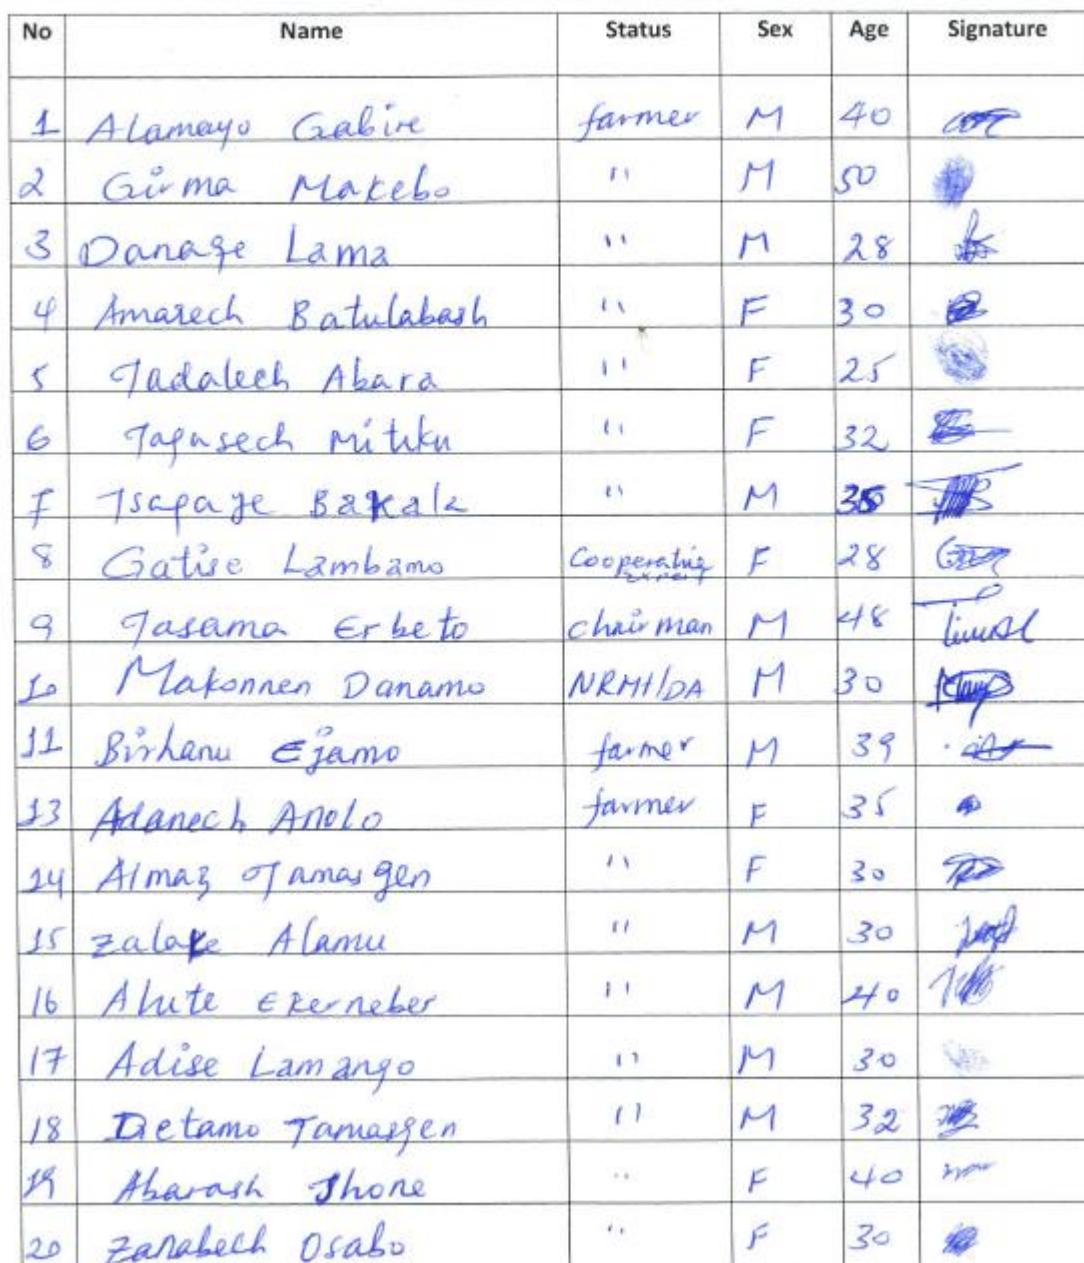 No Name Status Sex Age Signature
1 Alamayo Gabire farmer M 40
2 Girma Makebo " M 50
3 Danage Lama " M 28
4 Amarech Batulabash " F 30
5 Tadalech Abara " F 25
6 Tagasech Mitiku " F 32
7 Tsagaye Bakala " M 35
8 Gatise Lambamo Cooperative expert F 28
9 Tasama Erbeto chairman M 48
10 Makonnen Danamo NRM/DA M 30
11 Birhanu Ejamo farmer M 39
13 Adanech Anolo farmer F 35
14 Almaz Tamasgen " F 30
15 Zalake Alamu " M 30
16 Alute Ekerneber " M 40
17 Adise Lamango " M 30
18 Detamo Tamasgen " M 32
19 Abarash Shone " F 40
20 Zanabech Osabo " F 30